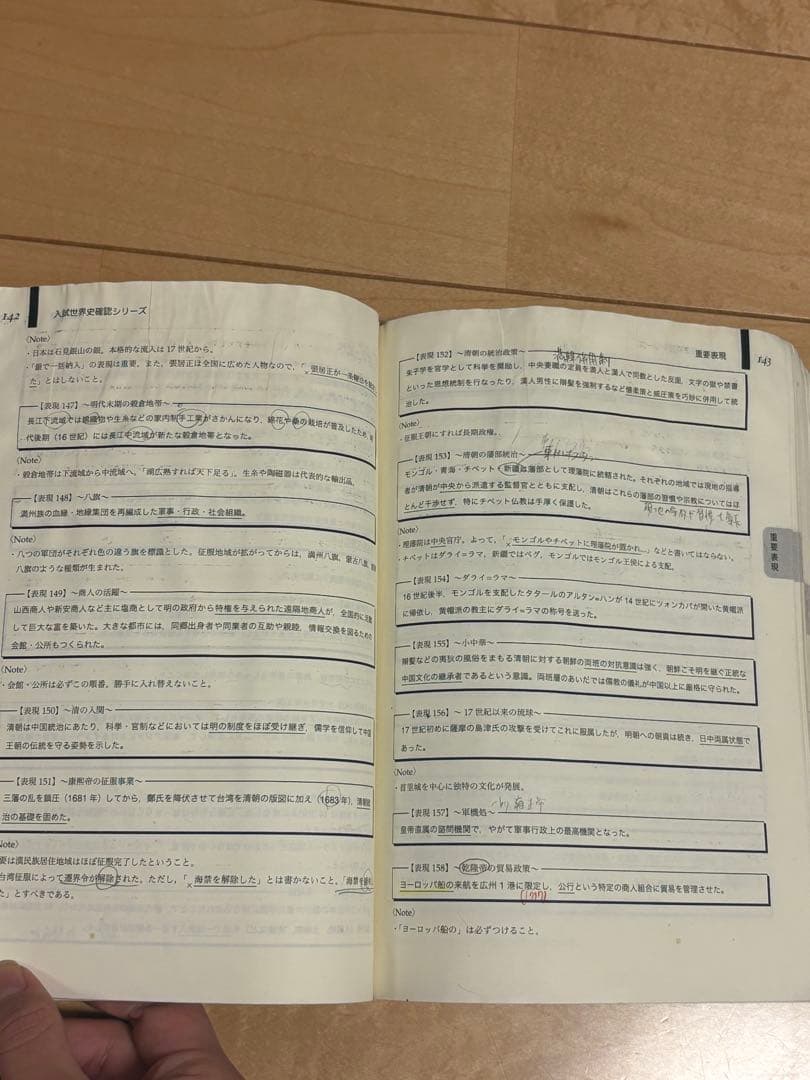 142
入試世界史確認シリーズ
〈Note〉
・日本は石見銀山の銀。本格的な流入は17世紀から。
・「銀で一括納入」の表現は重要。また、張居正は全国に広めた人物なので、「×張居正が一条鞭法を
た」とはしないこと。
【表現147】〜明代末期の穀倉地帯〜
長江下流域では綿織物や生糸などの家内制手工業がさかんになり、綿花や桑の栽培が普及したため、明
代後期（16世紀）には長江中流域が新たな穀倉地帯となった。
〈Note〉
・穀倉地帯は下流域から中流域へ。「湖広熟すれば天下足る」。生糸や陶磁器は代表的な輸出品。
【表現148】〜八旗〜
満州族の血縁・地縁集団を再編成した軍事・行政・社会組織。
〈Note〉
・八つの軍団がそれぞれ色の違う旗を標識とした。征服地域が拡がってからは、満州八旗、蒙古八旗、
八旗のような種類が生まれた。
【表現149】〜商人の活躍〜
山西商人や新安商人など主に塩商として明の政府から特権を与えられた遠隔地商人が、全国的に活動
して巨大な富を築いた。大きな都市には、同郷出身者や同業者の互助や親睦、情報交換を図るための
会館・公所もつくられた。
〈Note〉
・会館・公所は必ずこの順番。勝手に入れ替えないこと。
【表現150】〜清の入関〜
清朝は中国統治にあたり、科挙・官制などにおいては明の制度をほぼ受け継ぎ、儒学を信仰して中国
王朝の伝統を守る姿勢を示した。
【表現151】〜康熙帝の征服事業〜
三藩の乱を鎮圧（1681年）してから、鄭氏を降伏させて台湾を清朝の版図に加え（1683年）、清朝統
治の基礎を固めた。
〈Note〉
要は漢民族居住地域はほぼ征服完了したということ。
台湾征服によって遷界令が解除された。ただし、「×海禁を解除した」とは書かないこと。「海禁を
た」とすべきである。
重要表現
143
【表現152】〜清朝の統治政策〜
朱子学を官学として科挙を開始し、中央要職の定員を満人と漢人で同数とした反面、文字の獄や禁書
といった思想統制を行なったり、漢人男性に辮髪を強制するなど懐柔策と威圧策を巧妙に併用して統
治した。
〈Note〉
・征服王朝にすれば長期政権。
【表現153】〜清朝の藩部統治〜
モンゴル・青海・チベット・新疆は藩部として理藩院に統轄された。それぞれの地域では現地の指導
者が清朝が中央から派遣する監督官とともに支配し、清朝はこれらの藩部の習慣や宗教についてはほ
とんど干渉せず、特にチベット仏教は手厚く保護した。
〈Note〉
・理藩院は中央官庁。よって、「×モンゴルやチベットに理藩院が置かれ…」などと書いてはならない。
・チベットはダライ=ラマ、新疆ではベグ、モンゴルではモンゴル王侯による支配。
【表現154】〜ダライ=ラマ〜
16世紀後半、モンゴルを支配したタタールのアルタン=ハンが14世紀にツォンカパが開いた黄帽派
に帰依し、黄帽派の教主にダライ=ラマの称号を送った。
【表現155】〜小中華〜
辮髪などの夷狄の風俗をまもる清朝に対する朝鮮の両班の対抗意識は強く、朝鮮こそ明を継ぐ正統な
中国文化の継承者であるという意識。両班層のあいだでは儒教の儀礼が中国以上に厳格に守られた。
【表現156】〜17世紀以来の琉球〜
17世紀初めに薩摩の島津氏の攻撃を受けてこれに服属したが、明朝への朝貢は続き、日中両属状態で
あった。
〈Note〉
・首里城を中心に独特の文化が発展。
【表現157】〜軍機処〜
皇帝直属の諮問機関で、やがて軍事行政上の最高機関となった。
【表現158】〜乾隆帝の貿易政策〜
ヨーロッパ船の来航を広州1港に限定し、公行という特定の商人組合に貿易を管理させた。
(1757)
〈Note〉
・「ヨーロッパ船の」は必ずつけること。
重要表現